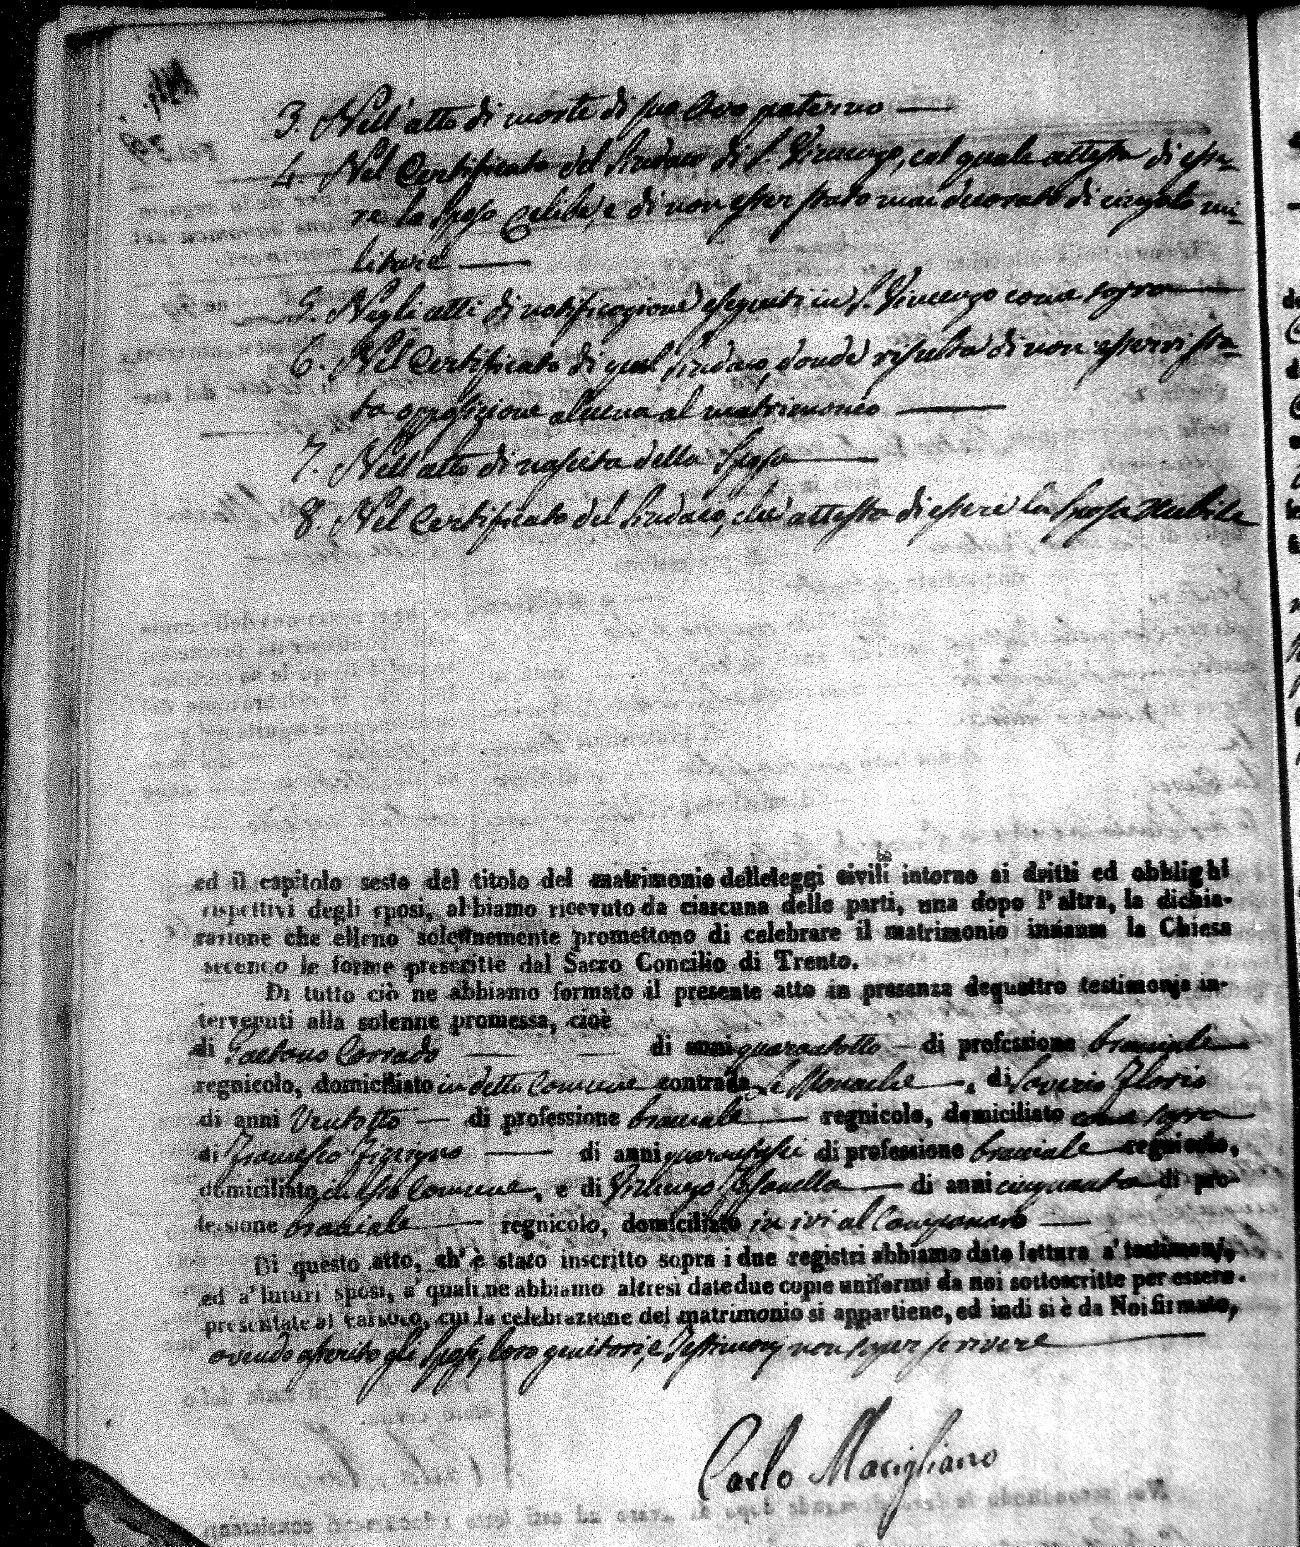 3. Nell'atto di morte di suo Avo paterno —
4. Nel Certificato del Sindaco di S. Vincenzo, col quale attesta di esse-
re lo Sposo Celibe, e di non esser stato mai decorato di cingolo mi-
litare —
5. Negli atti di notificazione eseguiti in S. Vincenzo come sopra —
6. Nel Certificato di quel Sindaco, donde risulta di non esservi sta-
ta opposizione alcuna al matrimonio —
7. Nell'atto di nascita della Sposa —
8. Nel Certificato del Sindaco, che attesta di essere la Sposa Nubile
ed il capitolo sesto del titolo del matrimonio delleleggi civili intorno ai dritti ed obblighi
rispettivi degli sposi, abbiamo ricevuto da ciascuna delle parti, una dopo l'altra, la dichia-
razione che elleno solennemente promettono di celebrare il matrimonio innanzi la Chiesa
secondo le forme prescritte dal Sacro Concilio di Trento.
Di tutto ciò ne abbiamo formato il presente atto in presenza dequattro testimonj in-
tervenuti alla solenne promessa, cioè
di Gaetano Corrado — di anni quarantotto — di professione bracciale —
regnicolo, domiciliato in detto Comune contrada Le Monache —, di Saverio Florio
di anni Ventotto — di professione bracciale — regnicolo, domiciliato come sopra
di Francesco — di anni quarantasei di professione bracciale regnicolo,
domiciliato in esso Comune, e di Vincenzo — di anni cinquanta di pro-
fessione bracciale — regnicolo, domiciliato in ivi al Campanaro —
Di questo atto, ch'è stato inscritto sopra i due registri abbiamo dato lettura a' testimonj,
ed a' futuri sposi, a' quali ne abbiamo altresì datedue copie uniformi da noi sottoscritte per essere
presentate al Parroco, cui la celebrazione del matrimonio si appartiene, ed indi si è da Noi firmato,
avendo asserito gli Sposi, loro genitori, e Testimonj non saper scrivere —
Carlo Marigliano